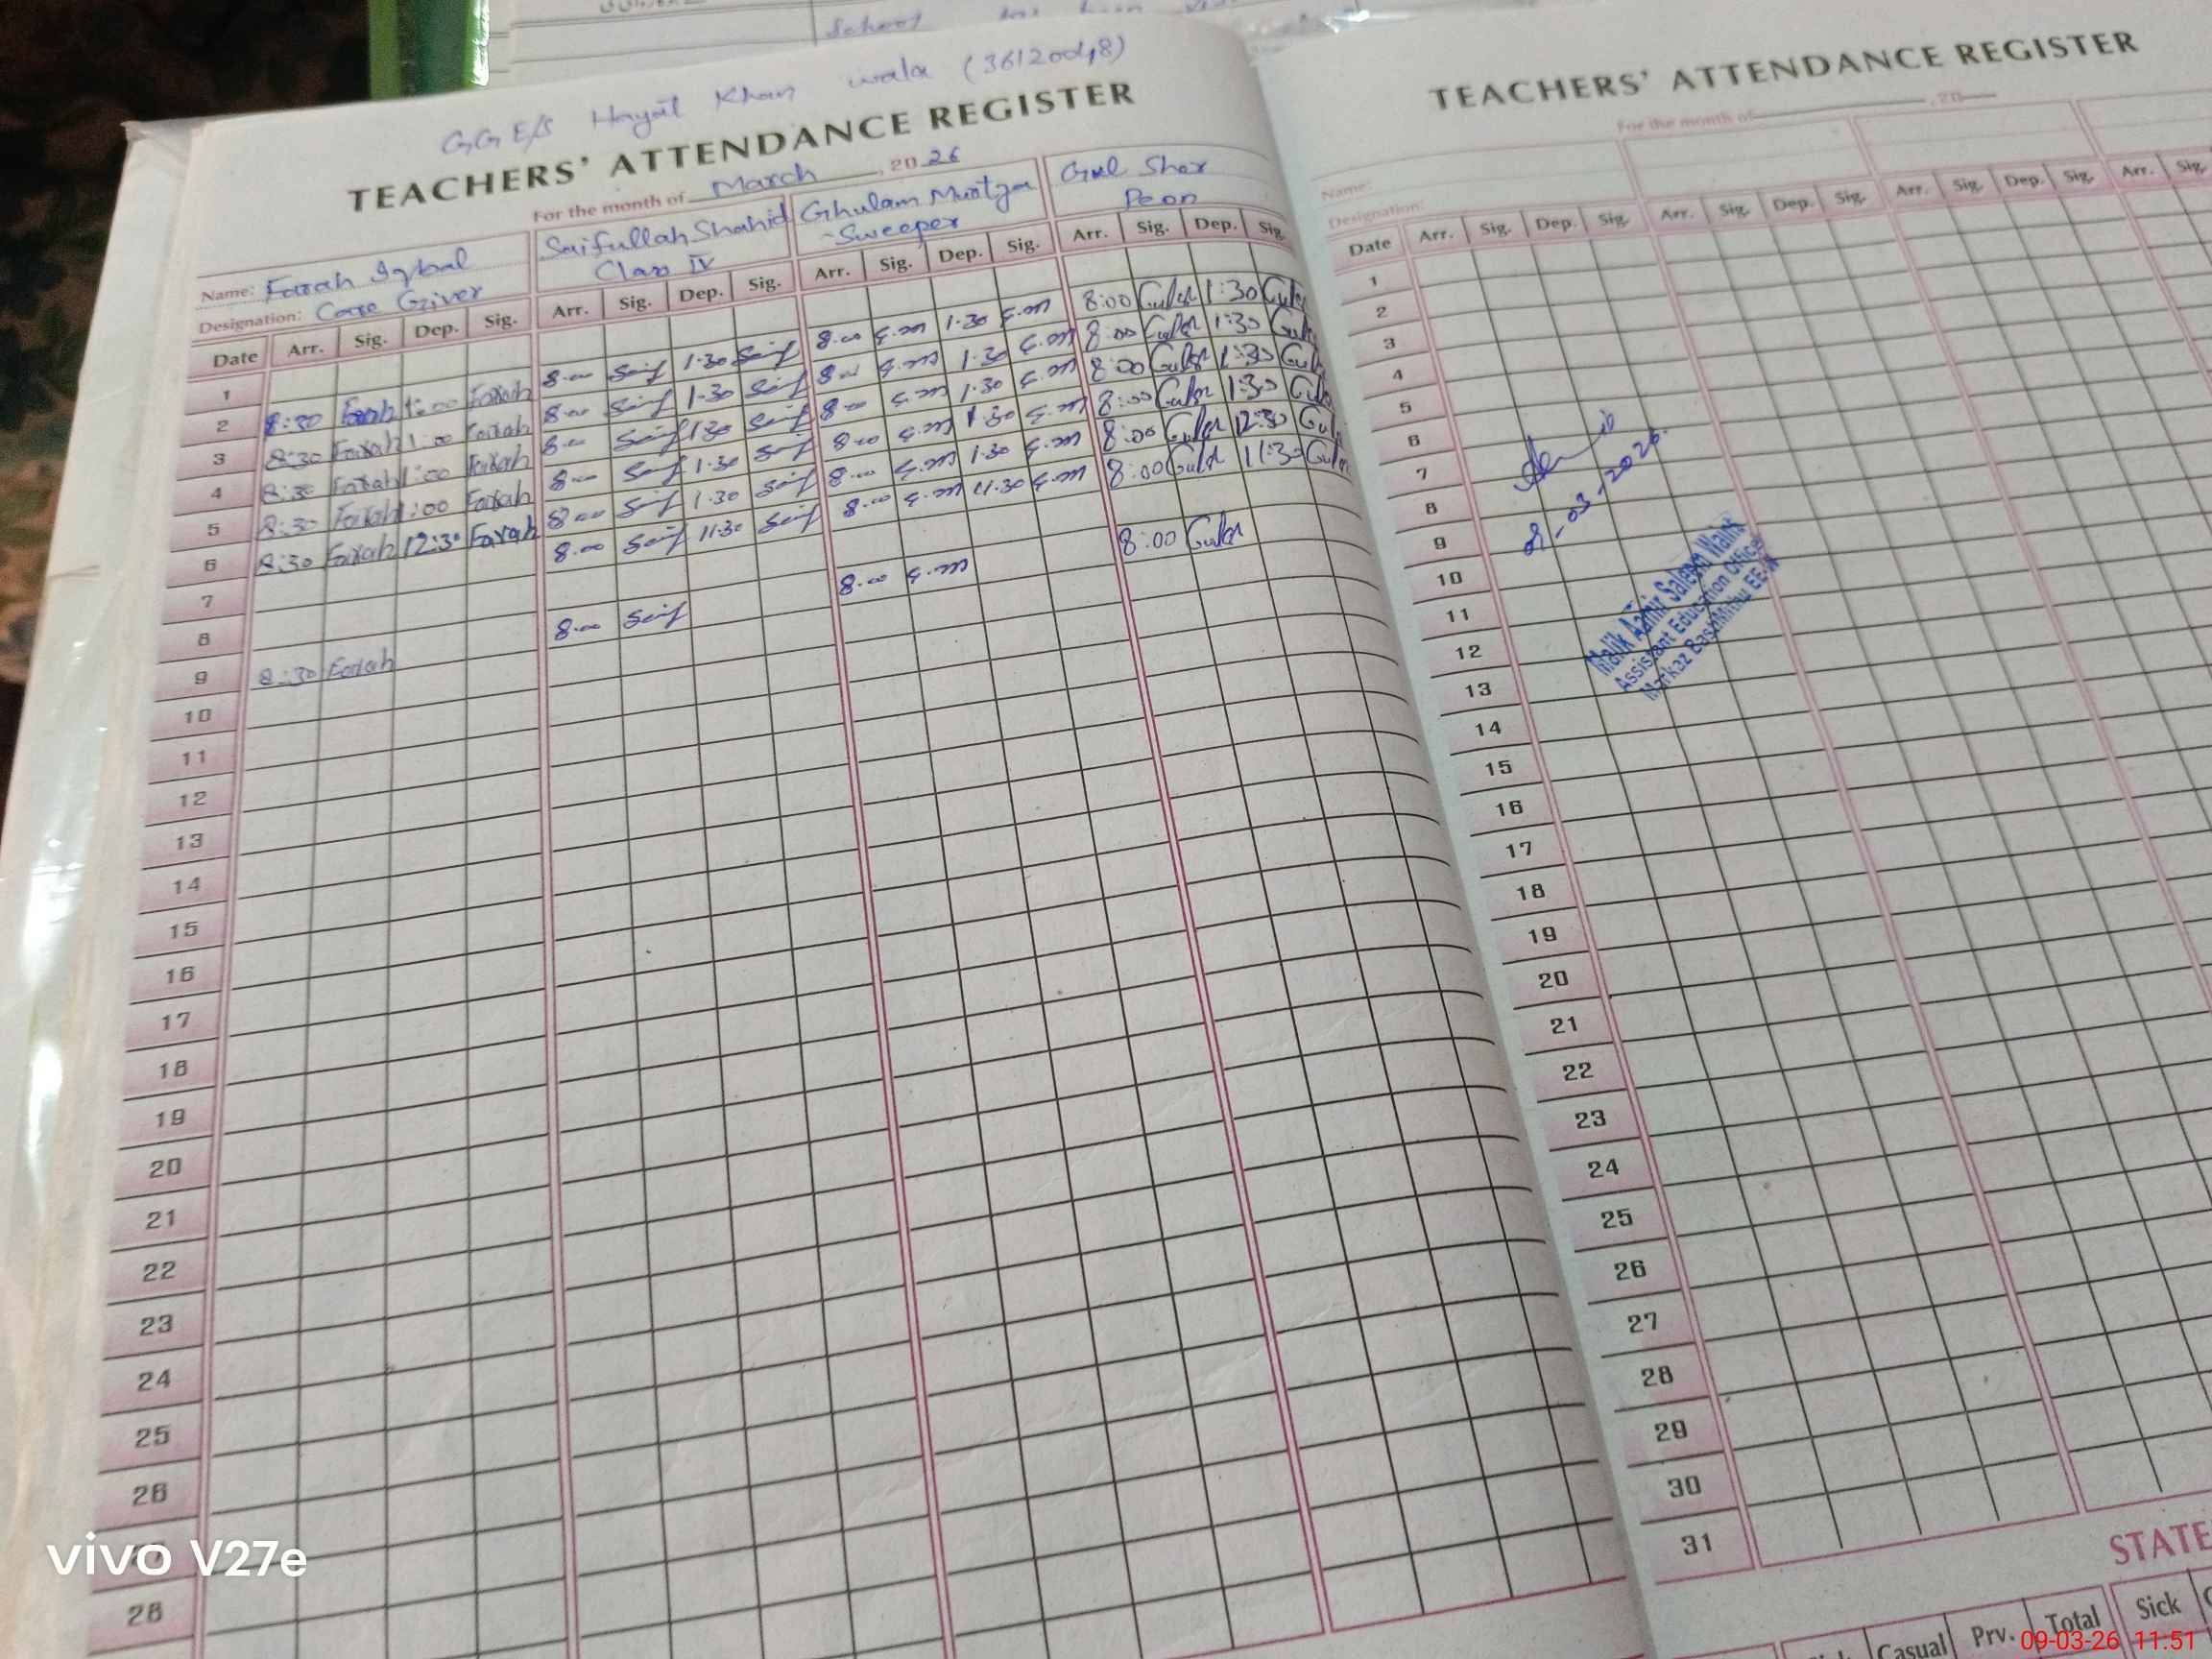 School
GGE/S Hayat Khan wala (36120048)
TEACHERS' ATTENDANCE REGISTER
For the month of March, 2026
Name: Farah Iqbal
Designation: Care Giver
Saifullah Shahid
Class IV
Ghulam Murtza
Sweeper
Gul Sher
Peon
Date Arr. Sig. Dep. Sig. Arr. Sig. Dep. Sig. Arr. Sig. Dep. Sig. Arr. Sig. Dep. Sig.
1
2 8:30 Farah 1:00 Farah 8.00 Saif 1.30 Saif 8.00 G.M 1.30 G.M 8:00 Gulsher 1:30 Gulsher
3 8:30 Farah 1:00 Farah 8.00 Saif 1.30 Saif 8.00 G.M 1.30 G.M 8:00 Gulsher 1:30 Gulsher
4 8:30 Farah 1:00 Farah 8.00 Saif 1.30 Saif 8.00 G.M 1.30 G.M 8:00 Gulsher 1:30 Gulsher
5 8:30 Farah 1:00 Farah 8.00 Saif 1.30 Saif 8.00 G.M 1.30 G.M 8:00 Gulsher 1:30 Gulsher
6 8:30 Farah 12:30 Farah 8.00 Saif 1.30 Saif 8.00 G.M 1.30 G.M 8:00 Gulsher 12:30 Gulsher
7 8.00 Saif 11.30 Saif 8.00 G.M 11.30 G.M 8:00 Gulsher 11:30 Gulsher
8
9 8:30 Farah 8.00 Saif 8.00 G.M 8:00 Gulsher
10
11
12
13
14
15
16
17
18
19
20
21
22
23
24
25
26
27
28
TEACHERS' ATTENDANCE REGISTER
For the month of , 20
Name:
Designation:
Date Arr. Sig. Dep. Sig. Arr. Sig. Dep. Sig. Arr. Sig. Dep. Sig. Arr. Sig.
1
2
3
4
5
6
7
8
9
10
11
12
13
14
15
16
17
18
19
20
21
22
23
24
25
26
27
28
29
30
31
-03-2026.
Malik Aamir Saleem
Assistant Education Officer
Markaz
STATE
Casual Prv. Total Sick
vivo V27e
09-03-26 11:51